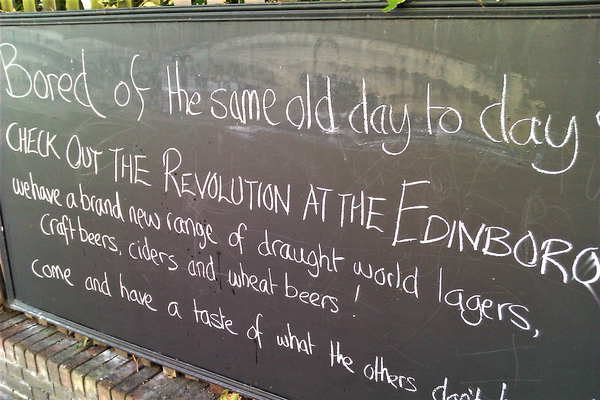 Bored of the same old day to day
CHECK OUT THE REVOLUTION AT THE EDINBORO
we have a brand new range of draught world lagers,
craft beers, ciders and wheat beers!
come and have a taste of what the others don't